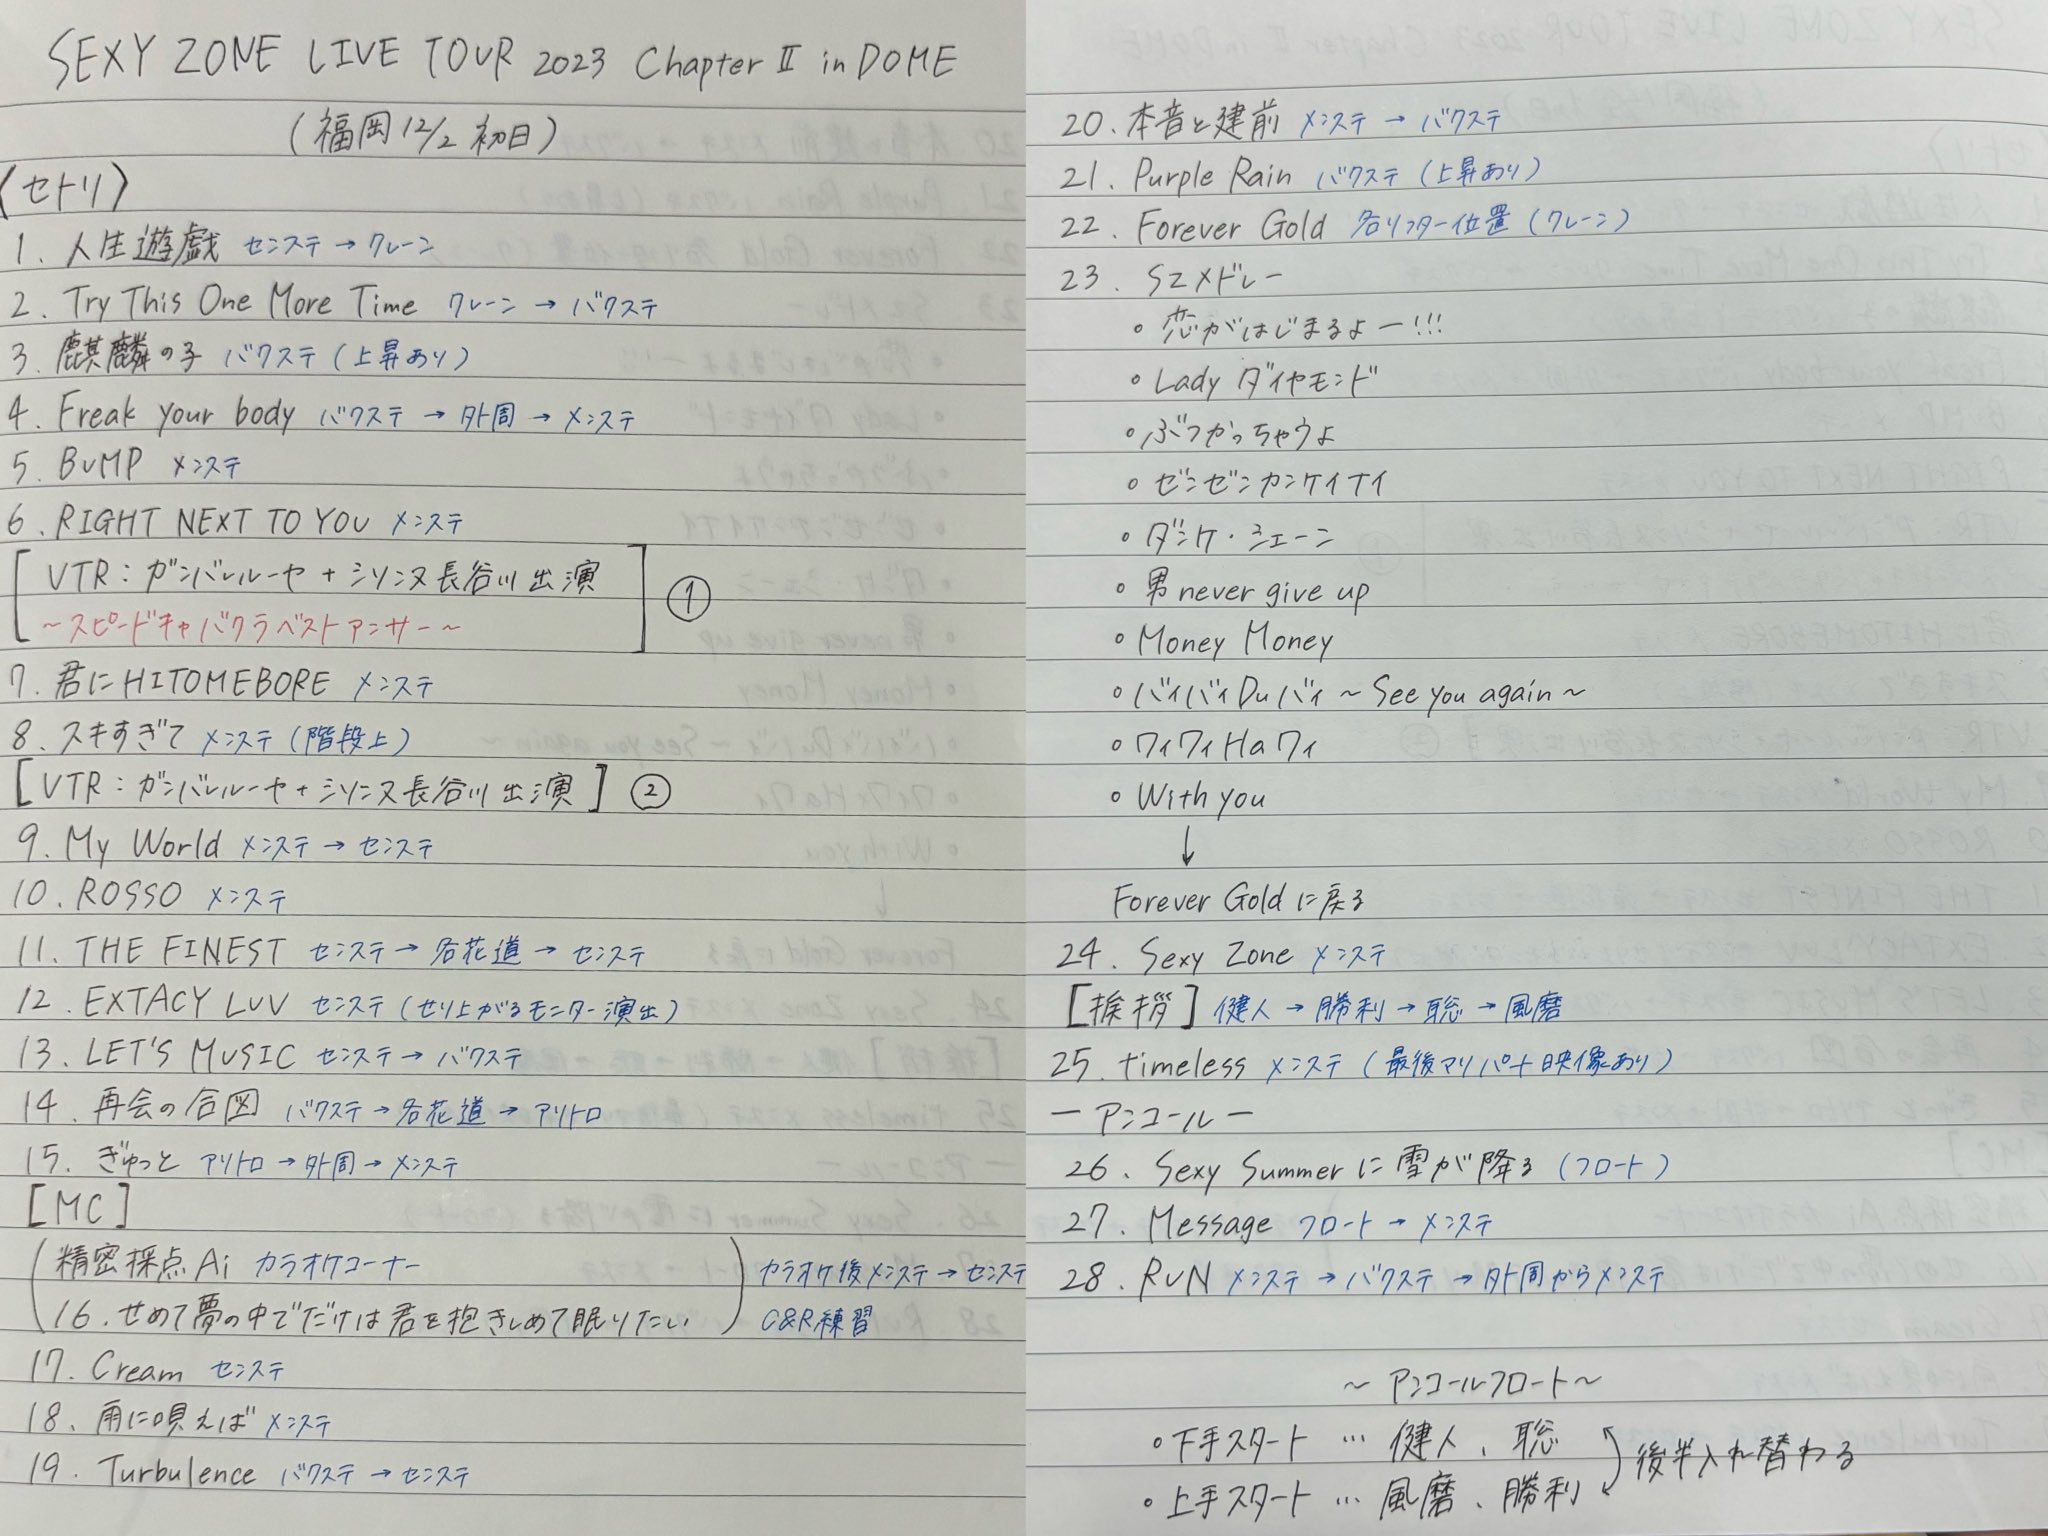 SEXY ZONE LIVE TOUR 2023 Chapter Ⅱ in DOME
(福岡12/2 初日)
〈セトリ〉
1. 人生遊戯 センステ→クレーン
2. Try This One More Time クレーン→バクステ
3. 麒麟の子 バクステ(上昇あり)
4. Freak your body バクステ→外周→メンステ
5. BUMP メンステ
6. RIGHT NEXT TO YOU メンステ
[VTR:ガンバレルーヤ+シソンヌ長谷川出演
~スピードキャバクラベストアンサー~] ①
7. 君にHITOMEBORE メンステ
8. スキすぎて メンステ(階段上)
[VTR:ガンバレルーヤ+シソンヌ長谷川出演] ②
9. My World メンステ→センステ
10. ROSSO メンステ
11. THE FINEST センステ→各花道→センステ
12. EXTACY LUV センステ(せり上がるモニター演出)
13. LET'S MUSIC センステ→バクステ
14. 再会の合図 バクステ→各花道→アリトロ
15. ぎゅっと アリトロ→外周→メンステ
[MC]
(精密採点Ai カラオケコーナー
16. せめて夢の中でだけは君を抱きしめて眠りたい)
カラオケ後メンステ→センステ
C&R練習
17. Cream センステ
18. 雨に唄えば メンステ
19. Turbulence バクステ→センステ
20. 本音と建前 メンステ→バクステ
21. Purple Rain バクステ(上昇あり)
22. Forever Gold 各リフター位置(クレーン)
23. SZメドレー
◦恋がはじまるよー!!!
◦Lady ダイヤモンド
◦ぶつかっちゃうよ
◦ゼンゼンカンケイナイ
◦ダンケ・シェーン
◦男 never give up
◦Money Money
◦バィバィDuバィ~See you again~
◦ワィワィHaワィ
◦With you
↓
Forever Goldに戻る
24. Sexy Zone メンステ
[挨拶] 健人→勝利→聡→風磨
25. timeless メンステ(最後マリパート映像あり)
ーアンコールー
26. Sexy Summerに雪が降る(フロート)
27. Message フロート→メンステ
28. RUN メンステ→バクステ→外周からメンステ
~アンコールフロート~
◦下手スタート…健人、聡
◦上手スタート…風磨、勝利
後半入れ替わる